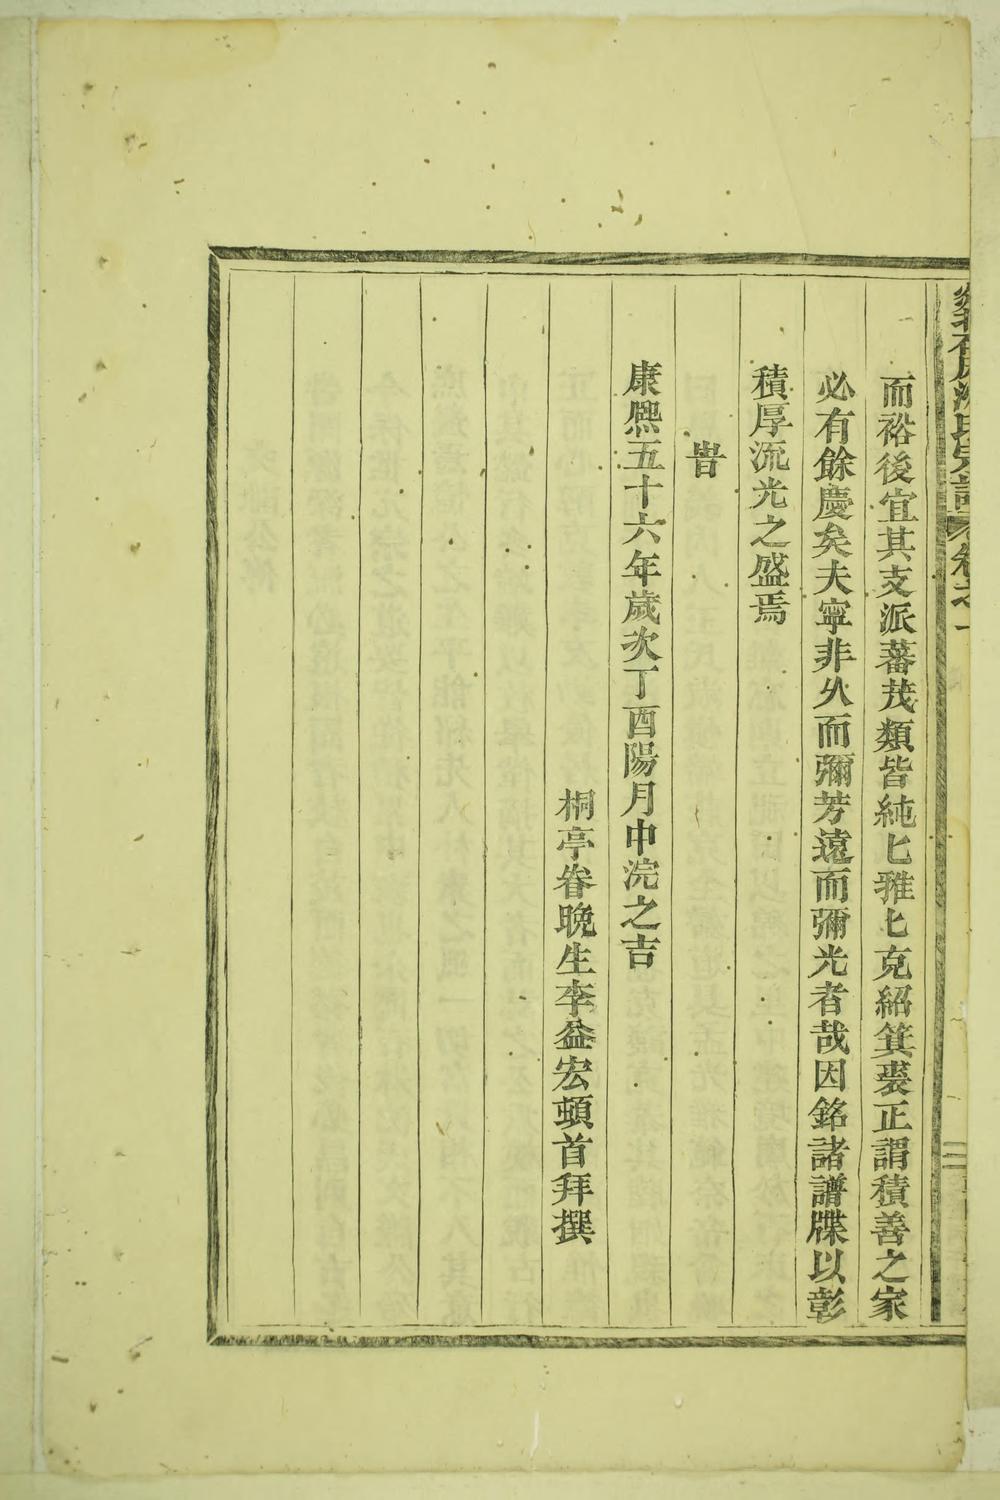 而裕後宜其支派蕃茂類皆純匕雅匕克紹箕裘正謂積善之家
必有餘慶矣夫寧非久而彌芳遠而彌光者哉因銘諸譜牒以彰
積厚流光之盛焉
旹
康熙五十六年歲次丁酉陽月中浣之吉
桐亭眷晚生李益宏頓首拜撰